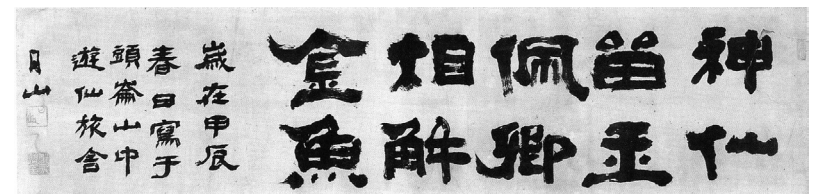 神仙
留玉
佩卿
相解
金魚
歲在甲辰
春日寫于
頭崙山中
遊仙旅舍
月山